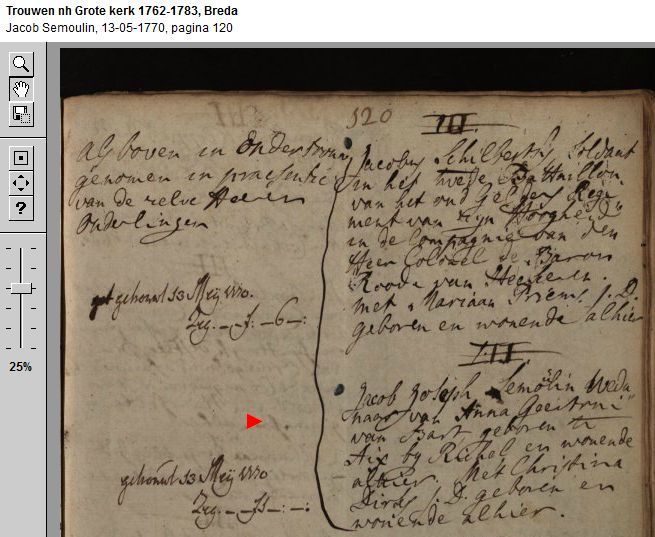 Trouwen nh Grote kerk 1762-1783, Breda
Jacob Semoulin, 13-05-1770, pagina 120
25%
120
als boven in ondertrouw
genomen in praesentie
van de selve Heeren
Ouderlingen
getrouwt 13 Meij 1770.
Zeg. - f. - 6 -:
getrouwt 13 Meij 1770
III
Jacobus Soldaat
in het twede Battaillon
van het oud Gelder Regi
ment van Zijn Hoogheid
in de Compagnie van den
Heer Colonel de Baron
van Heeckeren.
met Mariaan Priem, J.D.
geboren en wonende alhier
III
Jacob Joseph Semolin Wedu
naar van Anna
van Bart geboren te
Aix by en wonende
alhier. Met Christina
Dirks J.D. geboren en
wonende alhier.